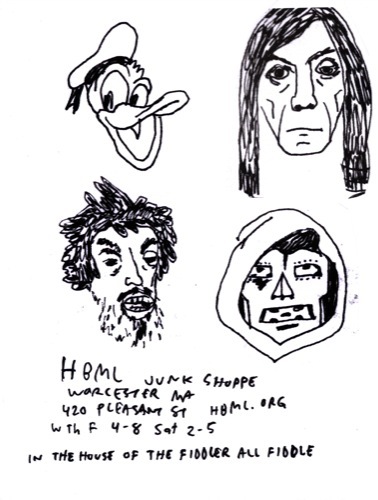 HBML JUNK SHOPPE
WORCESTER MA
420 PLEASANT ST HBML.ORG
W Th F 4-8 Sat 2-5
IN THE HOUSE OF THE FIDDLER ALL FIDDLE